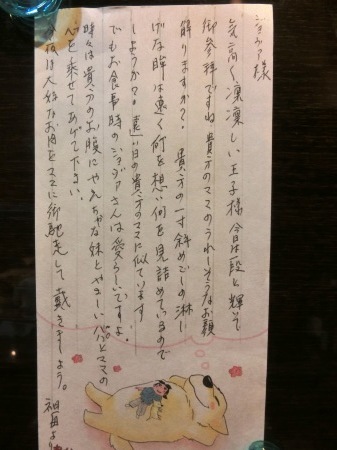 ジョヴァ様
気高く凛凛しい王子様 今日は一段と輝く
御参拝ですね 貴方のママのうれしそうなお顔
解りますか？ 貴方の一寸斜めごしの淋し
げな眸は遠く何を想い何を見詰めているので
しょうか？ 遠い日の貴方のママに似ています
でもお食事時のジョヴァさんは愛らしいですよ
時々は貴方のお腹にやんちゃな妹とやさしいパパとママの
心を乗せてあげて下さい。
今夜は大好なお肉をママに御馳走して戴きましょう。
祖母より